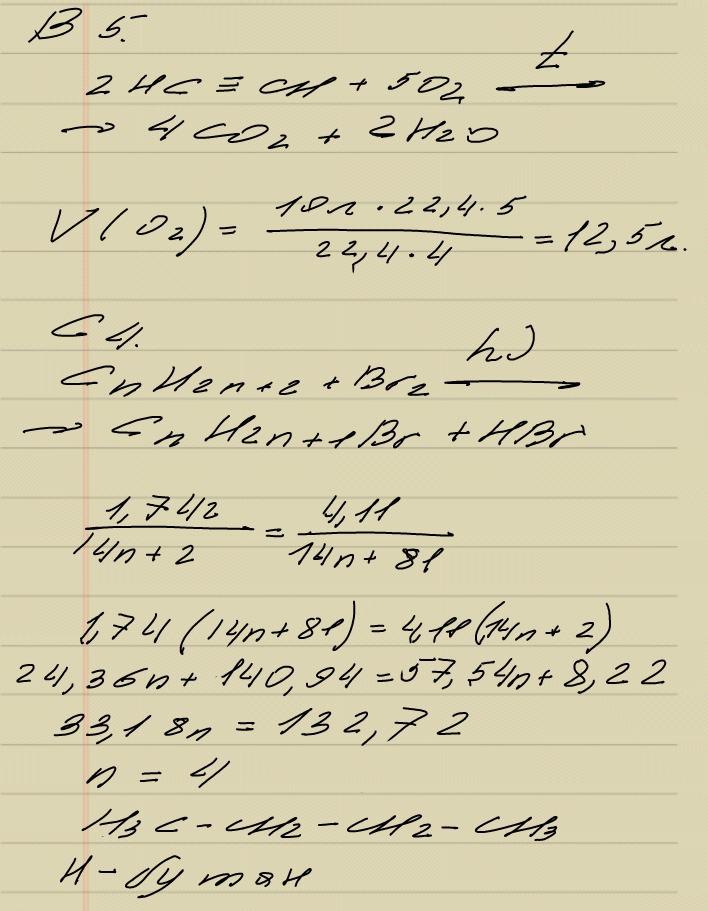 В 5.
2 HC ≡ CH + 5O₂ →(t)
→ 4CO₂ + 2H₂O
V(O₂) = (10л · 22,4 · 5) / (22,4 · 4) = 12,5л.
С 4.
CnH2n+2 + Br₂ →(hν)
→ CnH2n+1Br + HBr
1,74г / (14n + 2) = 4,11 / (14n + 81)
1,74(14n+81) = 4,11(14n+2)
24,36n + 140,94 = 57,54n + 8,22
33,18n = 132,72
n = 4
H₃C - CH₂ - CH₂ - CH₃
Н-бутан